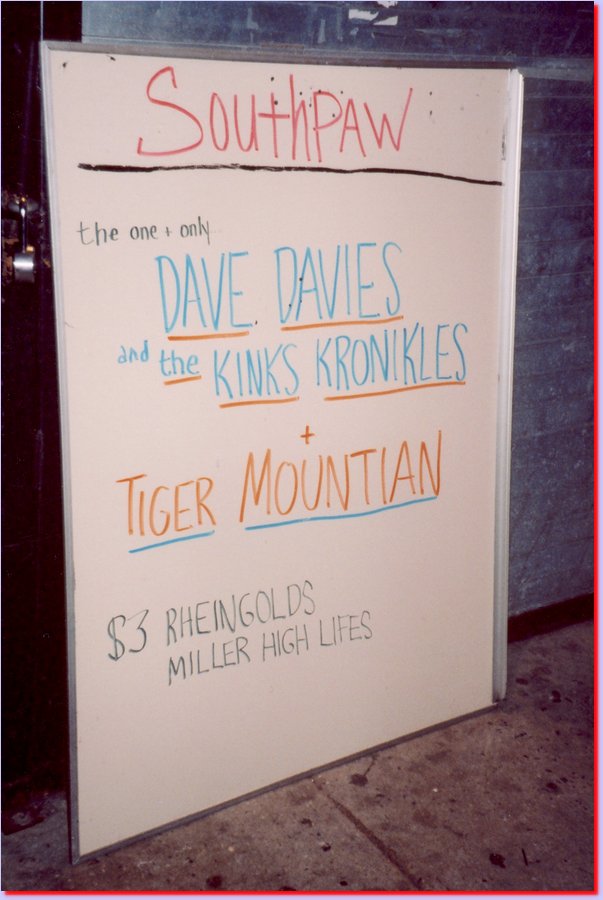 SouthPAW
the one + only
DAVE DAVIES
and the KINKS KRONIKLES
+
TIGER MOUNTIAN
$3 RHEINGOLDS
MILLER HIGH LIFES